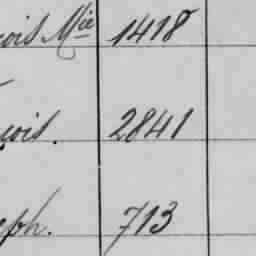 çois Mie 1418
çois. 2841
eph. 713